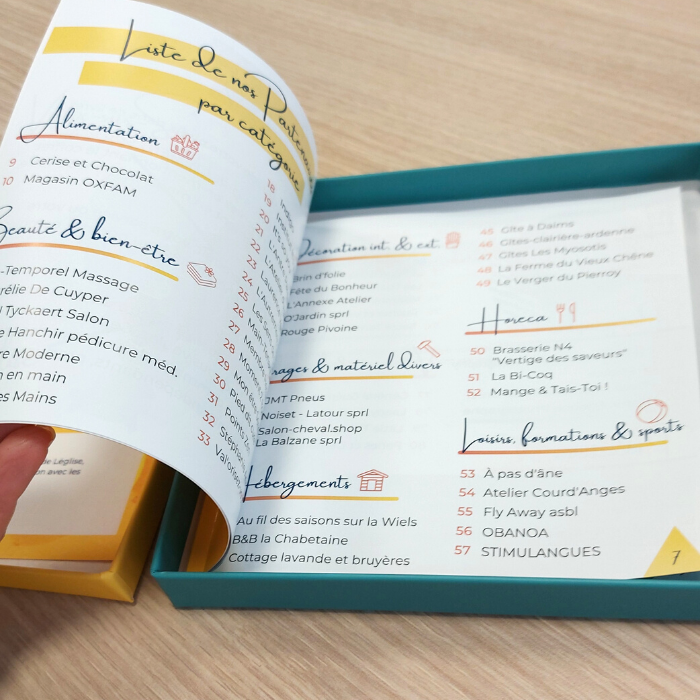 Liste de nos
par catégorie
Alimentation
9 Cerise et Chocolat
10 Magasin OXFAM
Beauté & bien-être
-Temporel Massage
rélie De Cuyper
Tyckaert Salon
e Hanchir pédicure méd.
re Moderne
n en main
es Mains
18
19
20
21
22
23
24
25
26
27
28
29
30
31
32
33
Décoration int. & ext.
Brin d'folie
Fête du Bonheur
L'Annexe Atelier
O'Jardin sprl
Rouge Pivoine
rages & matériel divers
JMT Pneus
Noiset - Latour sprl
Salon-cheval.shop
La Balzane sprl
Hébergements
Au fil des saisons sur la Wiels
B&B la Chabetaine
Cottage lavande et bruyères
45 Gîte à Daims
46 Gîtes-clairière-ardenne
47 Gîtes Les Myosotis
48 La Ferme du Vieux Chêne
49 Le Verger du Pierroy
Horeca
50 Brasserie N4
"Vertige des saveurs"
51 La Bi-Coq
52 Mange & Tais-Toi !
Loisirs, formations & sports
53 À pas d'âne
54 Atelier Courd'Anges
55 Fly Away asbl
56 OBANOA
57 STIMULANGUES
7
de Léglise,
on avec les